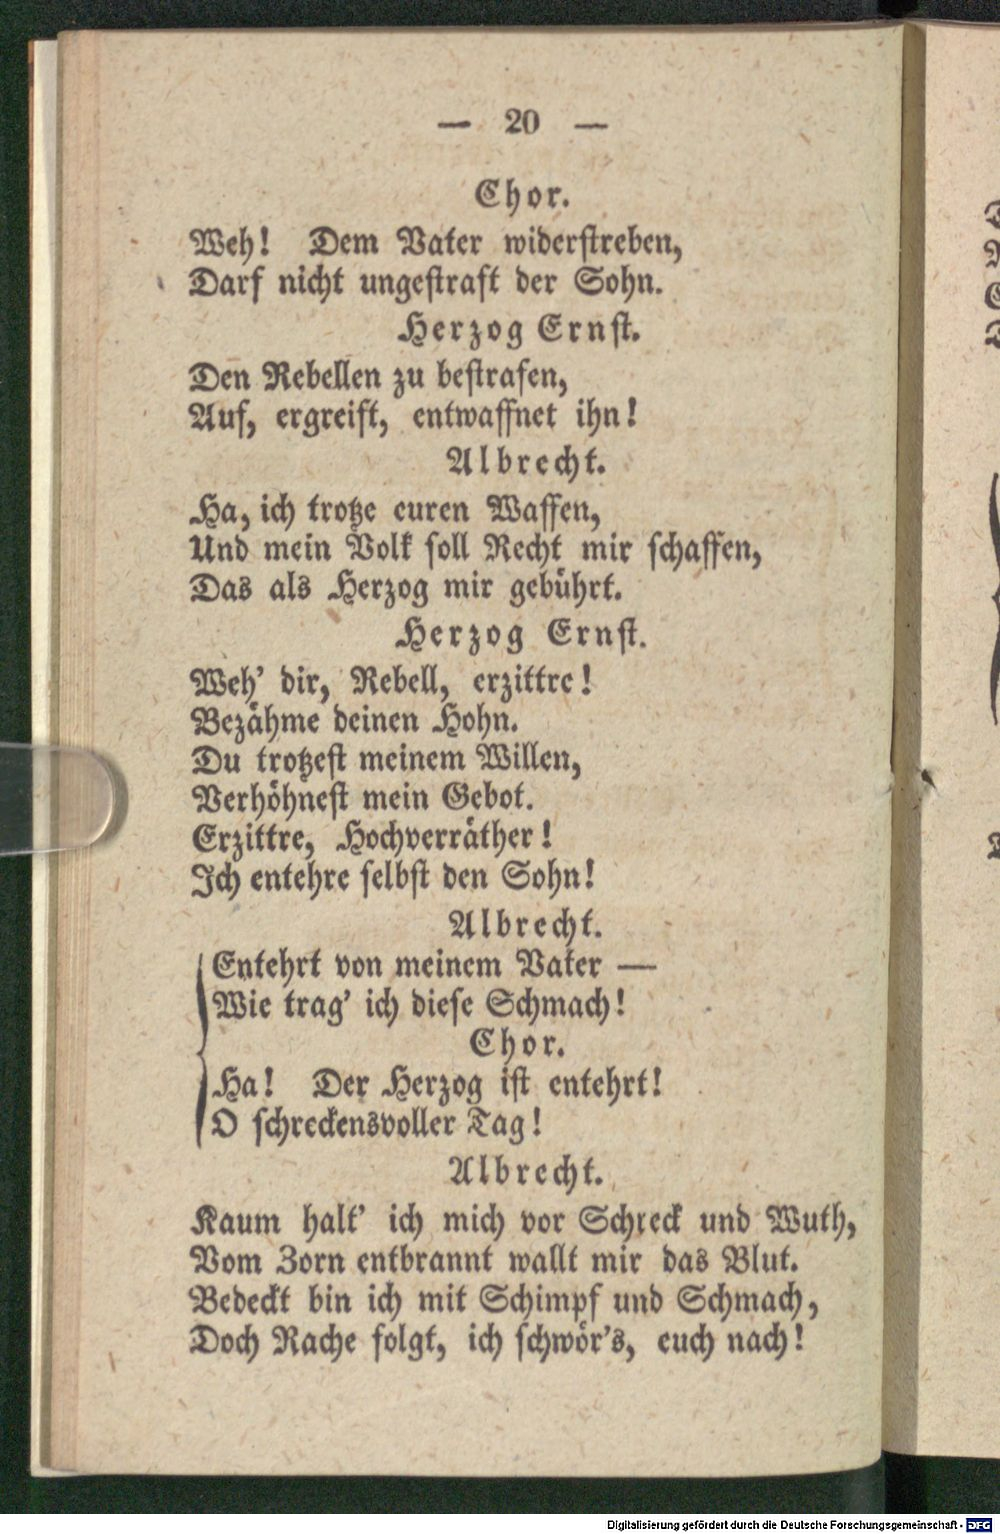 — 20 —
Chor.
Weh! Dem Vater widerstreben,
Darf nicht ungestraft der Sohn.
Herzog Ernst.
Den Rebellen zu bestrafen,
Auf, ergreift, entwaffnet ihn!
Albrecht.
Ha, ich trotze euren Waffen,
Und mein Volk soll Recht mir schaffen,
Das als Herzog mir gebührt.
Herzog Ernst.
Weh' dir, Rebell, erzittre!
Bezähme deinen Hohn.
Du trotzest meinem Willen,
Verhöhnest mein Gebot.
Erzittre, Hochverräther!
Ich entehre selbst den Sohn!
Albrecht.
Entehrt von meinem Vater —
Wie trag' ich diese Schmach!
Chor.
Ha! Der Herzog ist entehrt!
O schreckensvoller Tag!
Albrecht.
Kaum halt' ich mich vor Schreck und Wuth,
Vom Zorn entbrannt wallt mir das Blut.
Bedeckt bin ich mit Schimpf und Schmach,
Doch Rache folgt, ich schwör's, euch nach!
Digitalisierung gefördert durch die Deutsche Forschungsgemeinschaft - DFG